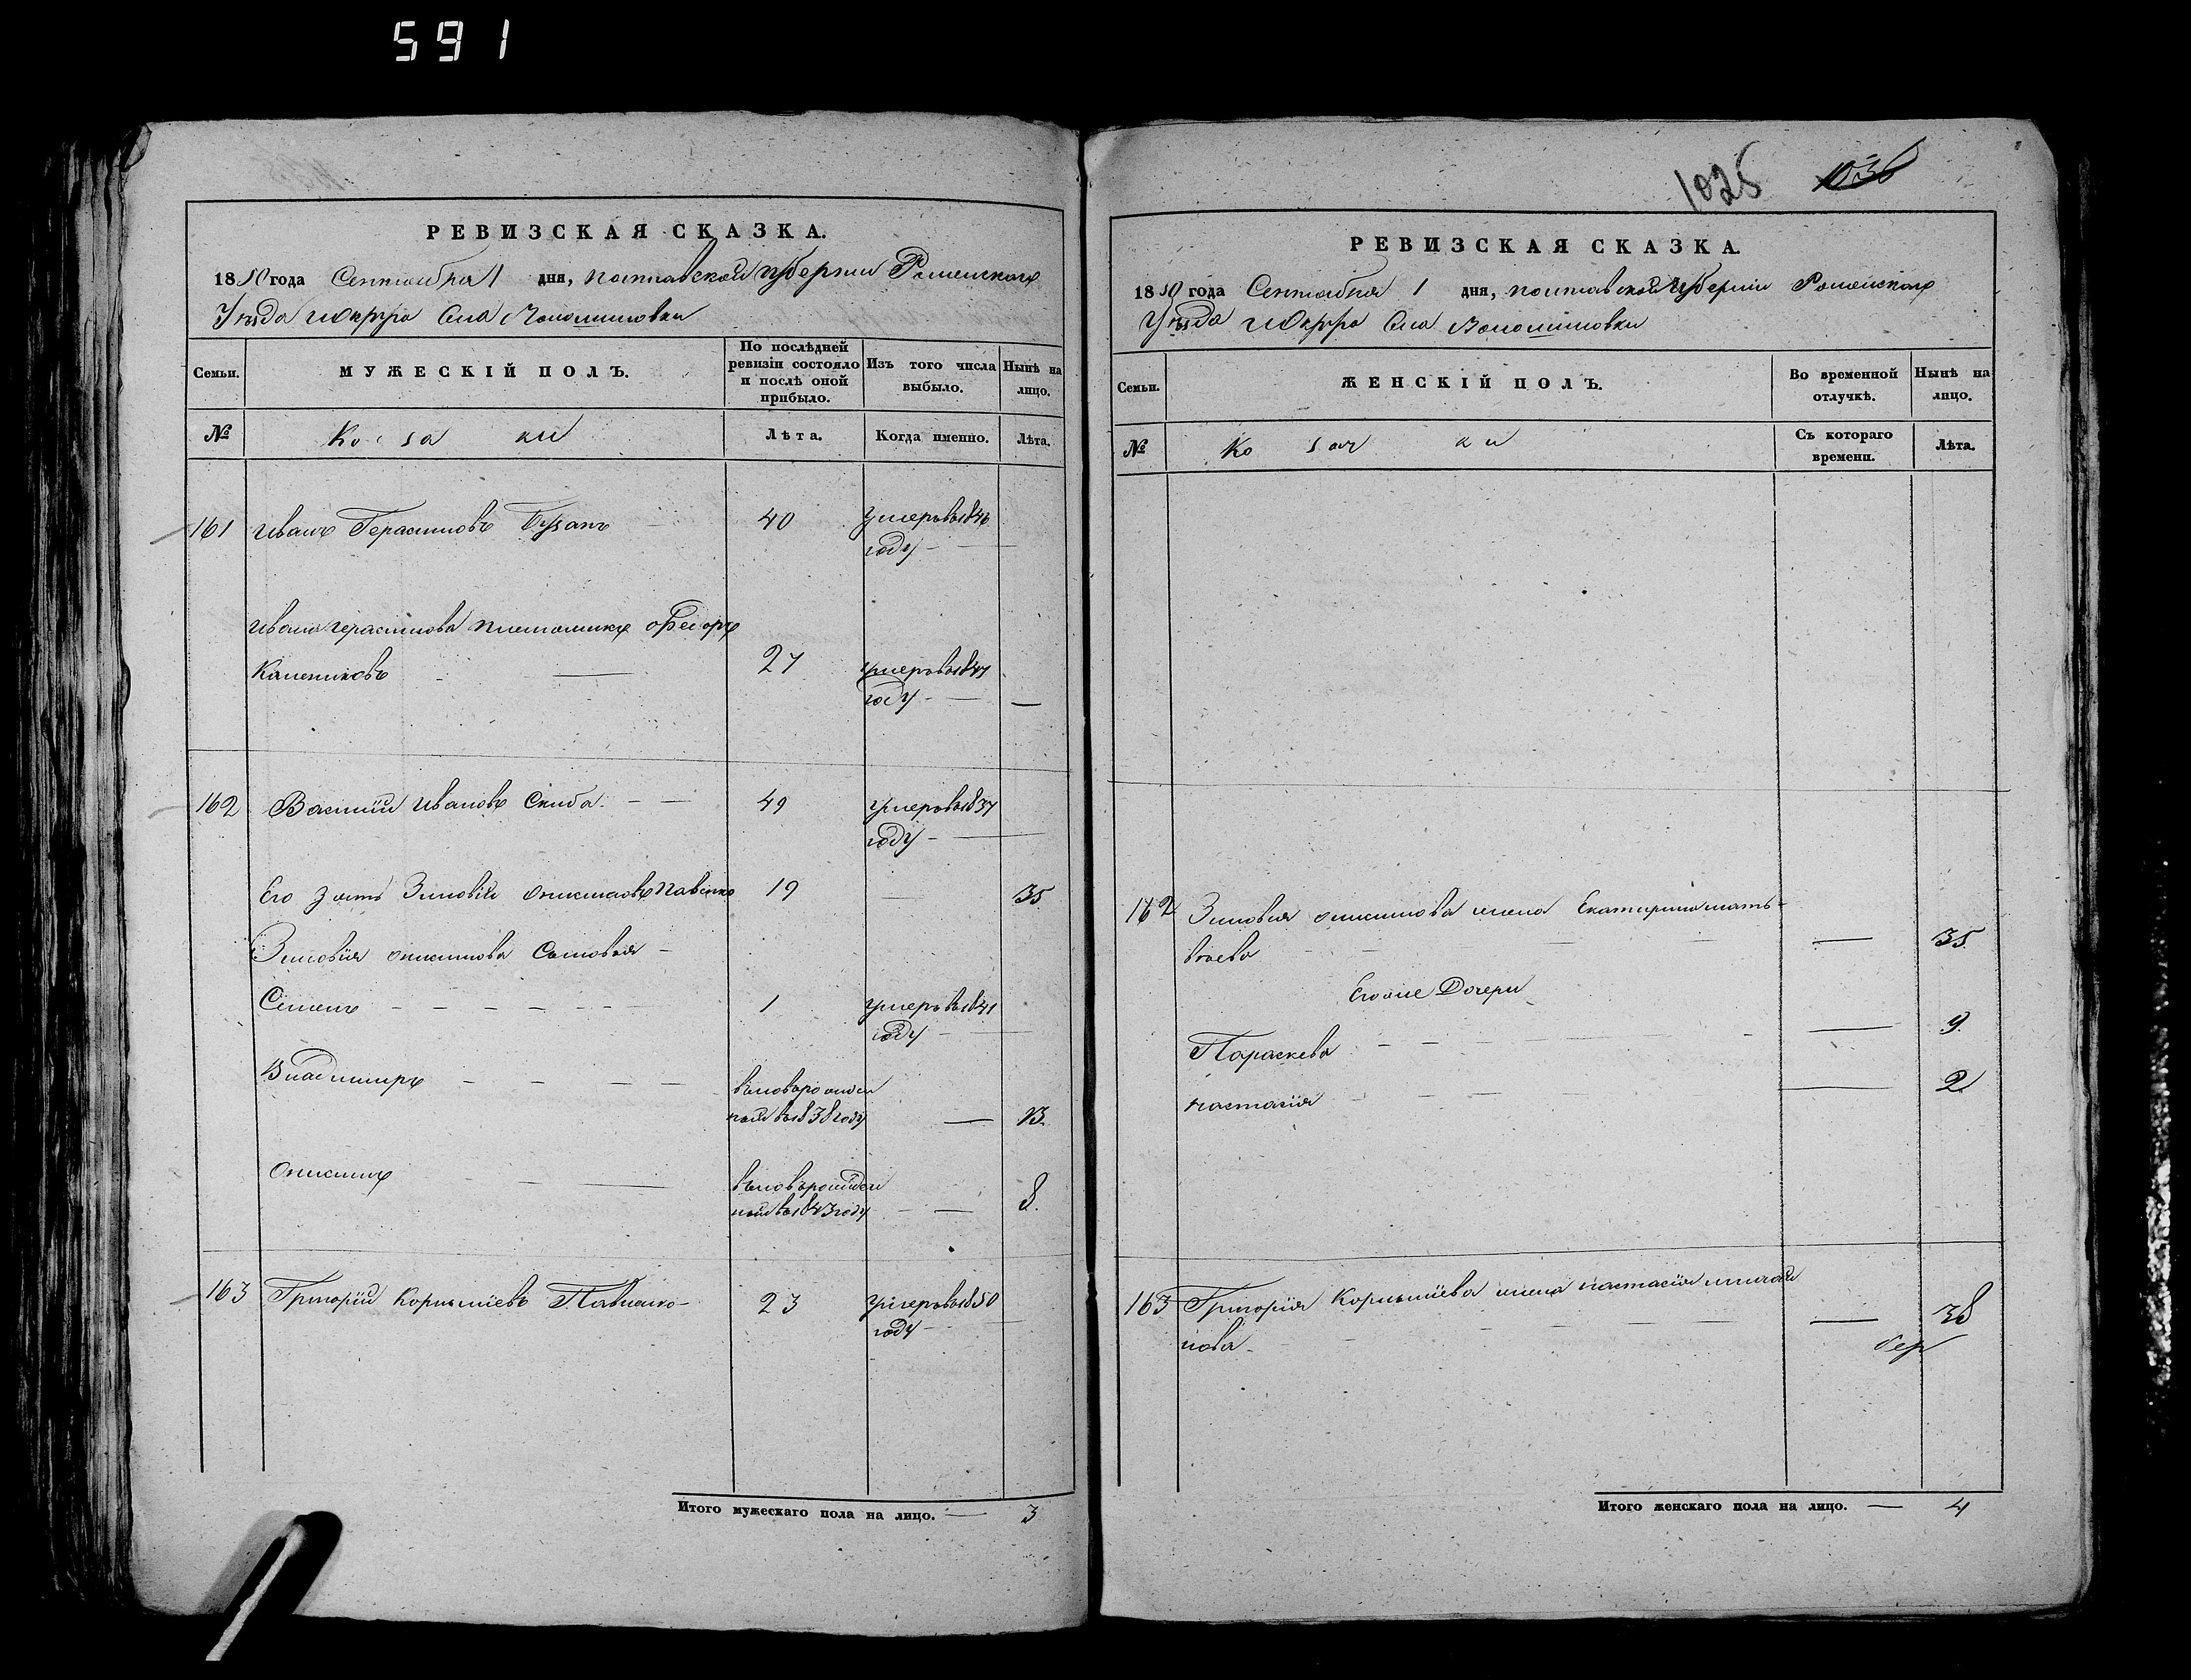 591
1025 1036
РЕВИЗСКАЯ СКАЗКА.
1850 года Сентября 1 дня, Полтавской губернии Роменского
Уѣзда и Округа Села
Семьи. МУЖЕСКІЙ ПОЛЪ. По послѣдней ревизіи состояло и послѣ оной прибыло. Изъ того числа выбыло. Нынѣ на лицо.
№ Козаки Лѣта. Когда именно. Лѣта.
161 Иванъ Герасимовъ 40 Умеръ въ 1846
году
Ивана Герасимова племянникъ Федоръ
27 Умеръ въ 1847
году —
162 Василій Ивановъ Скиба 49 Умеръ въ 1837
году
Его зять Зиновій Онисимовъ Павленко 19 — 35
Зиновія Онисимова Сыновья
Семенъ 1 Умеръ въ 1841
году
Владимиръ вновърожден
ный въ 1838 году — 13.
Онисимъ вновърожден
ный въ 1843 году — 8.
163 Григорій Корнилиевъ Павленко 23 Умеръ въ 1850
году
Итого мужескаго пола на лицо. — 3
РЕВИЗСКАЯ СКАЗКА.
1850 года Сентября 1 дня, Полтавской губерніи Роменского
Уѣзда и Округа Села
Семьи. ЖЕНСКІЙ ПОЛЪ. Во временной отлучкѣ. Нынѣ на лицо.
№ Козачки Съ котораго времени. Лѣта.
162 Зиновия Онисимова жена Екатерина Мать-
вѣева — 35
Его же Дочери
Параскева — 9.
Настасія — 2
163 Григорія Корнилиева жена Настасія Михай
лова — 38
Итого женскаго пола на лицо. — 4